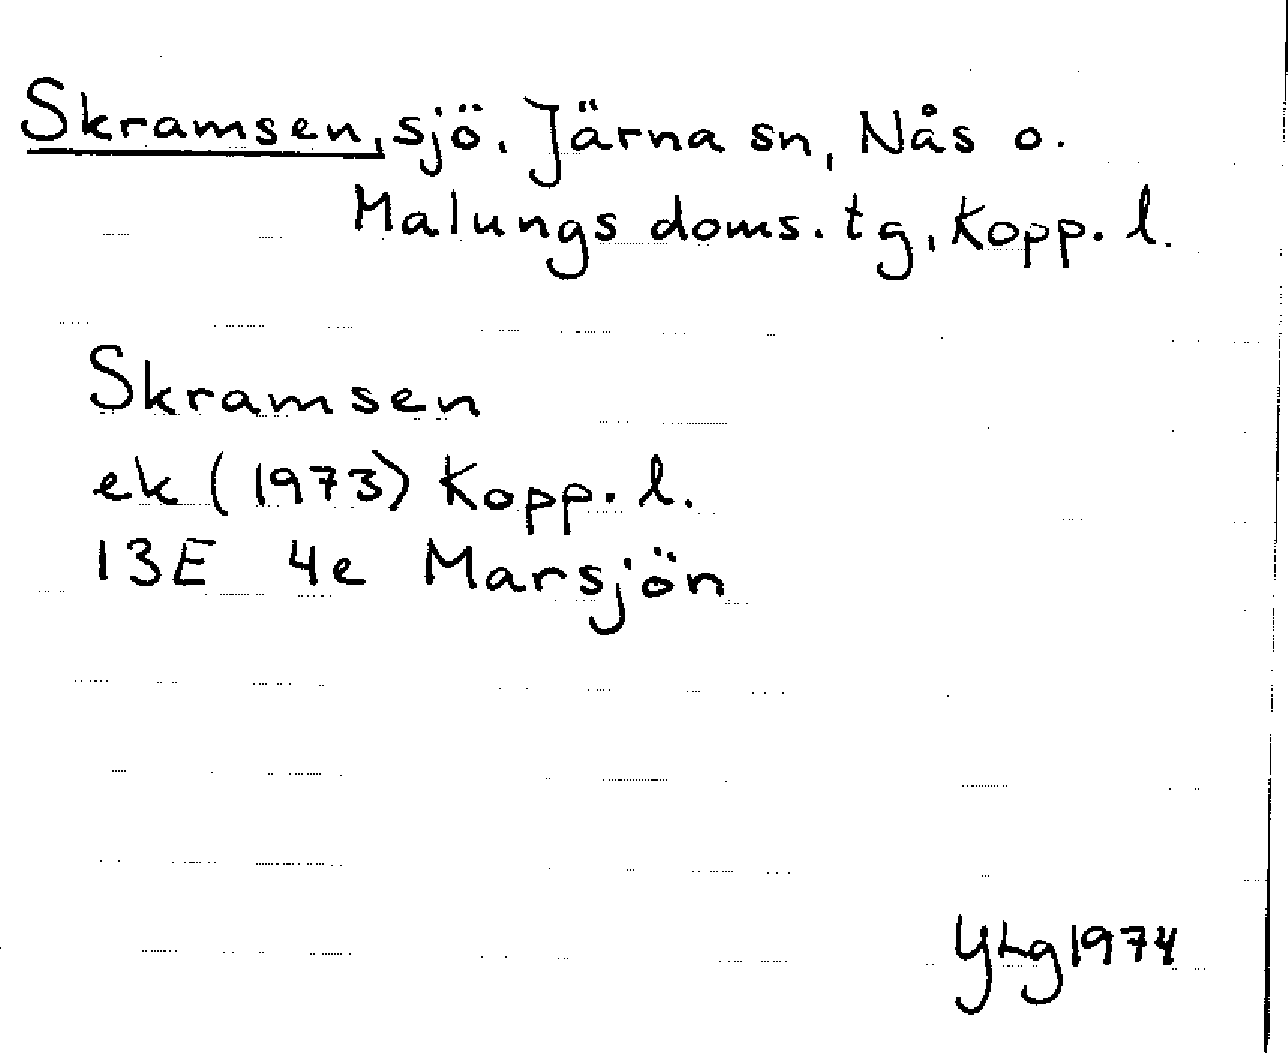 Skramsen, sjö. Järna sn, Nås o.
Malungs doms. tg, Kopp. l.
Skramsen
ek (1973) Kopp. l.
13E 4e Marsjön
YLg 1974